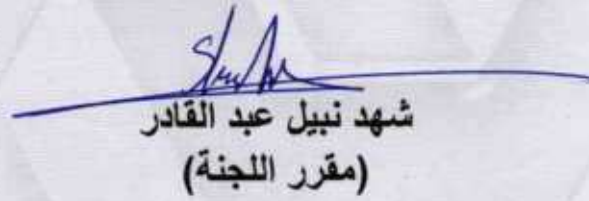 شهد نبيل عبد القادر
(مقرر اللجنة)